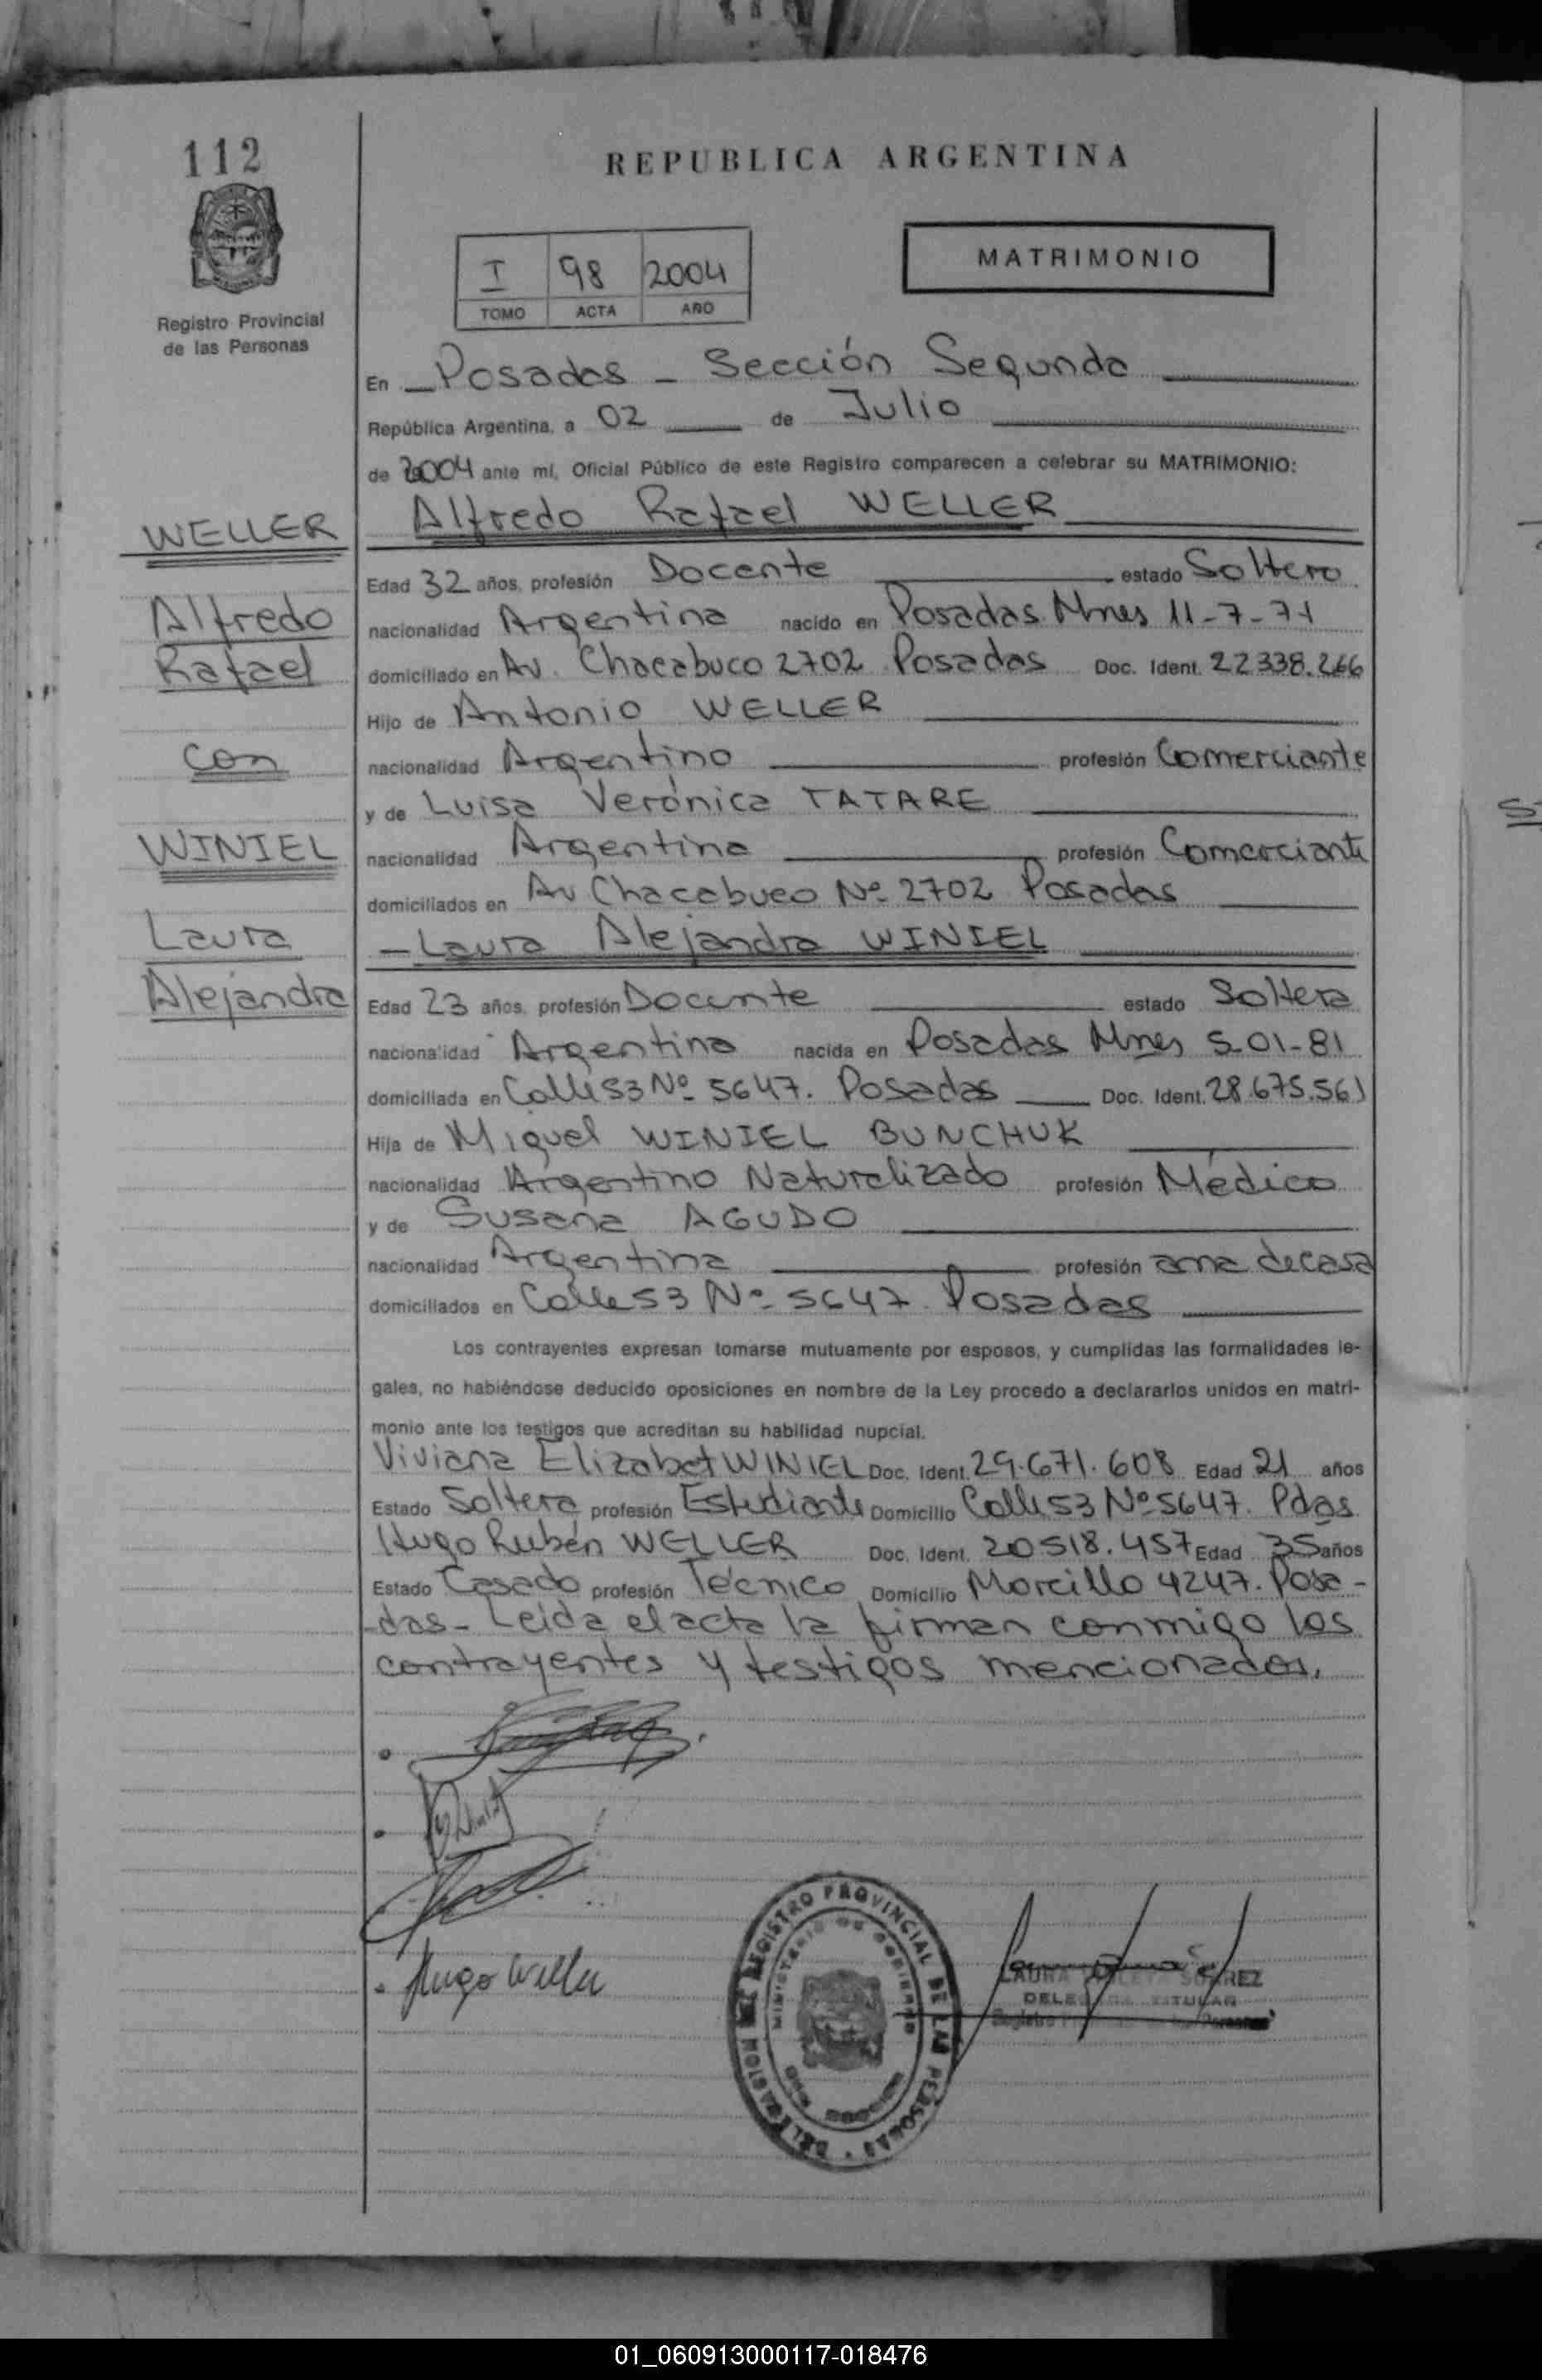 112
REPUBLICA ARGENTINA
I 98 2004
TOMO ACTA AÑO
MATRIMONIO
Registro Provincial
de las Personas
En Posadas - Sección Segunda
República Argentina, a 02 de Julio
de 2004 ante mí, Oficial Público de este Registro comparecen a celebrar su MATRIMONIO:
WELLER
Alfredo Rafael WELLER
Edad 32 años, profesión Docente estado Soltero
Alfredo
nacionalidad Argentina nacido en Posadas Mnes 11-7-71
Rafael
domiciliado en Av. Chacabuco 2702 Posadas Doc. Ident. 22338.266
Hijo de Antonio WELLER
con
nacionalidad Argentino profesión Comerciante
y de Luisa Verónica TATARE
WINIEL
nacionalidad Argentina profesión Comerciante
domiciliados en Av Chacabuco Nº 2702 Posadas
Laura
- Laura Alejandra WINIEL
Alejandra
Edad 23 años, profesión Docente estado Soltera
nacionalidad Argentina nacida en Posadas Mnes 5-01-81
domiciliada en Calle 53 Nº 5647. Posadas Doc. Ident. 28.675.561
Hija de Miguel WINIEL BUNCHUK
nacionalidad Argentino Naturalizado profesión Médico
y de Susana AGUDO
nacionalidad Argentina profesión ama de casa
domiciliados en Calle 53 Nº 5647 Posadas
Los contrayentes expresan tomarse mutuamente por esposos, y cumplidas las formalidades le-
gales, no habiéndose deducido oposiciones en nombre de la Ley procedo a declararlos unidos en matri-
monio ante los testigos que acreditan su habilidad nupcial.
Viviana Elizabet WINIEL Doc. Ident. 29.671.608 Edad 21 años
Estado Soltera profesión Estudiante Domicilio Calle 53 Nº 5647. Pdas.
Hugo Rubén WELLER Doc. Ident. 20518.457 Edad 35 años
Estado Casado profesión Técnico Domicilio Morcillo 4247. Posa-
das- Leida el acta la firman conmigo los
contrayentes y testigos mencionados.
Hugo Weller
REGISTRO PROVINCIAL DE LAS PERSONAS · DELEGACION
MINISTERIO DE GOBIERNO
LAURA SUAREZ
DELEGADA TITULAR
01_060913000117-018476